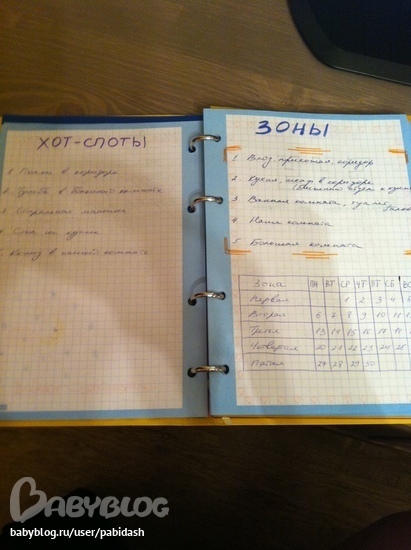 ХОТ-СПОТЫ
1. Пилон в коридоре
2. Тумба в большой комнате
3. Стиральная машина
4. Стол на кухне
5. Комод в нашей комнате
ЗОНЫ
1. Вход, прихожая, коридор
2. Кухня, шкаф в коридоре
3. Ванная комната, туалет
4. Наша комната
5. Большая комната
Зона ПН ВТ СР ЧТ ПТ СБ ВС
Первая 1 2 3 4
Вторая 6 7 8 9 10 11
Третья 13 14 15 16 17 18
Четвертая 20 21 22 23 24 25
Пятая 27 28 29 30
BABYBLOG
babyblog.ru/user/pabidash